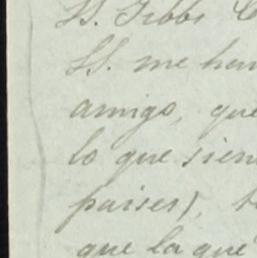 SS. Gibbs
SS. me han
amigo, que
lo que sien
paises),
que la que